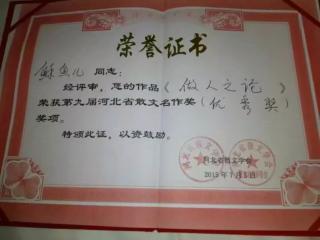 荣誉证书
苏鱼儿 同志:
经评审,您的作品《做人之论》
荣获第九届河北省散文名作奖(优秀奖)
奖项。
特颁此证,以资鼓励。
河北省散文学会